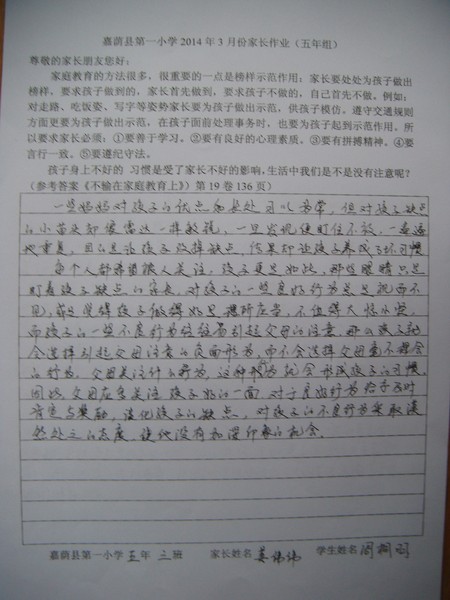 嘉荫县第一小学2014年3月份家长作业（五年组）
尊敬的家长朋友您好：
家庭教育的方法很多，很重要的一点是榜样示范作用；家长要处处为孩子做出
榜样，要求孩子做到的，家长首先做到，要求孩子不做的，自己首先不做。例如：
对走路、吃饭姿、写字等姿势家长要为孩子做出示范，供孩子模仿。遵守交通规则
方面更要为孩子做出示范，在孩子面前处理事务时，也要为孩子起到示范作用。所
以要求家长必须：①要善于学习。②要有良好的心理素质。③要有拼搏精神。④要
言行一致。⑤要遵纪守法。
孩子身上不好的 习惯是受了家长不好的影响，生活中我们是不是没有注意呢？
（参考答案《不输在家庭教育上》）第19卷136页）
一些妈妈对孩子的优点和长处习以为常，但对孩子缺点
的小苗头却像雷达一样敏锐，一旦发现便盯住不放，一遍遍
地重复，目的是让孩子改掉缺点，结果却让孩子养成了坏习惯
每个人都希望被人关注，孩子更是如此，那些眼睛只是
盯着孩子缺点的家长，对孩子的一些良好行为总是视而不
见，或是觉得孩子做得好是理所应当，不值得大惊小怪，
而孩子的一些不良行为较容易引起父母的注意，那么孩子就
会选择引起父母注意的负面行为，而不会选择父母毫不理会
的行为，父母关注什么行为，这种行为就会形成孩子的习惯，
因此，父母应多关注孩子好的一面，对于良好行为给予及时
肯定与奖励，淡化孩子的缺点，对孩子的不良行为采取淡
然处之的态度，使他没有加深印象的机会。
嘉荫县第一小学五年三班 家长姓名 姜 学生姓名